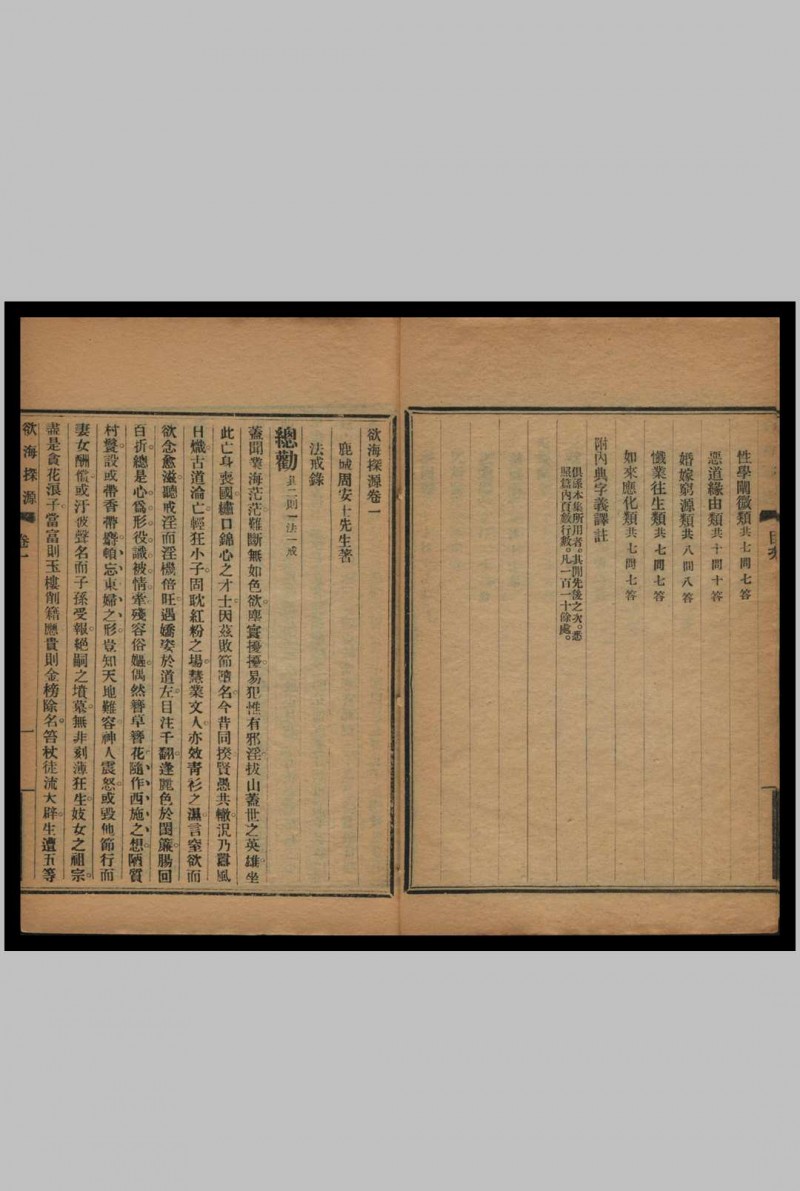 性學闡微類共七問七答
惡道緣由類共十問十答
婚嫁窮源類共八問八答
懺業往生類共七問七答
如來應化類共七問七答
附內典字義譯註
俱係本集所用者。其開先後之次。悉
照篇內頁數行數。凡一百一十餘處。
欲海探源卷一
鹿城周安士先生著
法戒錄
總勸共二則一法一戒
蓋聞業海茫茫。難斷無如色欲。塵寰擾擾。易犯惟有邪淫。拔山蓋世之英雄。坐
此亡身喪國。繡口錦心之才士。因茲敗節墮名。今昔同揆。賢愚共轍。況乃囂風
日熾。古道淪亡。輕狂小子。固耽紅粉之場。慧業文人。亦效青衫之濕。言窒欲而
欲念愈滋。聽戒淫而淫機倍旺。遇嬌姿於道左。目注千翻。逢麗色於閨簾。腸回
百折。總是心為形役。識被情牽。殘容俗嫗。偶然簪草簪花。隨作西施之想。陋質
村鬟。設或帶香帶麝。頓忘東婦之形。豈知天地難容。神人震怒。或毀他節行。而
妻女酬償。或汙彼聲名。而子孫受報。絕嗣之墳墓。無非刻薄狂生。妓女之祖宗。
盡是貪花浪子。當富則玉樓削籍。應貴則金榜除名。笞杖徒流大辟。生遭五等
欲海探源
卷一
一